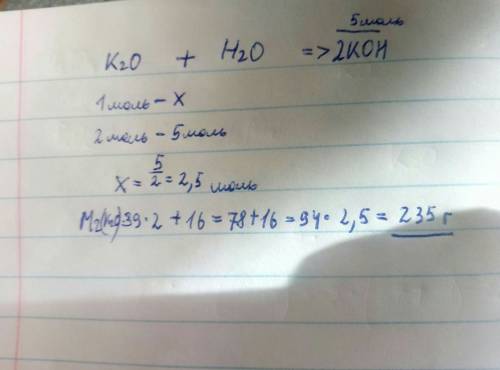 5 моль
K₂O + H₂O => 2KOH
1 моль - X
2 моль - 5 моль
X = 5/2 = 2,5 моль
Mr(K₂O)=39·2 + 16 = 78+16 = 94· 2,5 = 235 г